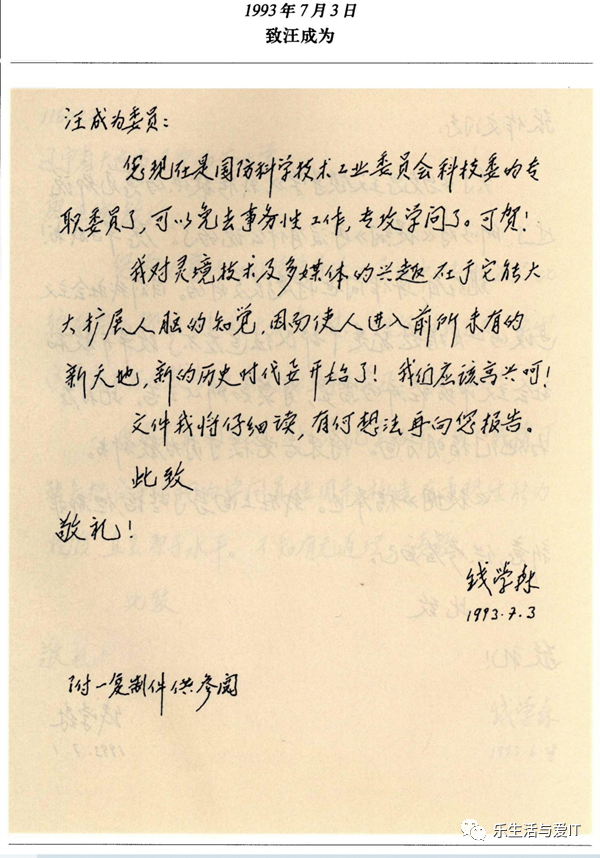 1993年7月3日
致汪成为
汪成为委员：
您现在是国防科学技术工业委员会科技委的专
职委员了，可以免去事务性工作，专攻学问了。可贺！
我对灵境技术及多媒体的兴趣在于它能大
大扩展人脑的知觉，因而使人进入前所未有的
新天地，新的历史时代要开始了！我们应该高兴呵！
文件我将仔细读，有何想法再向您报告。
此致
敬礼！
钱学森
1993.7.3
附一复制件供参阅
乐生活与爱IT